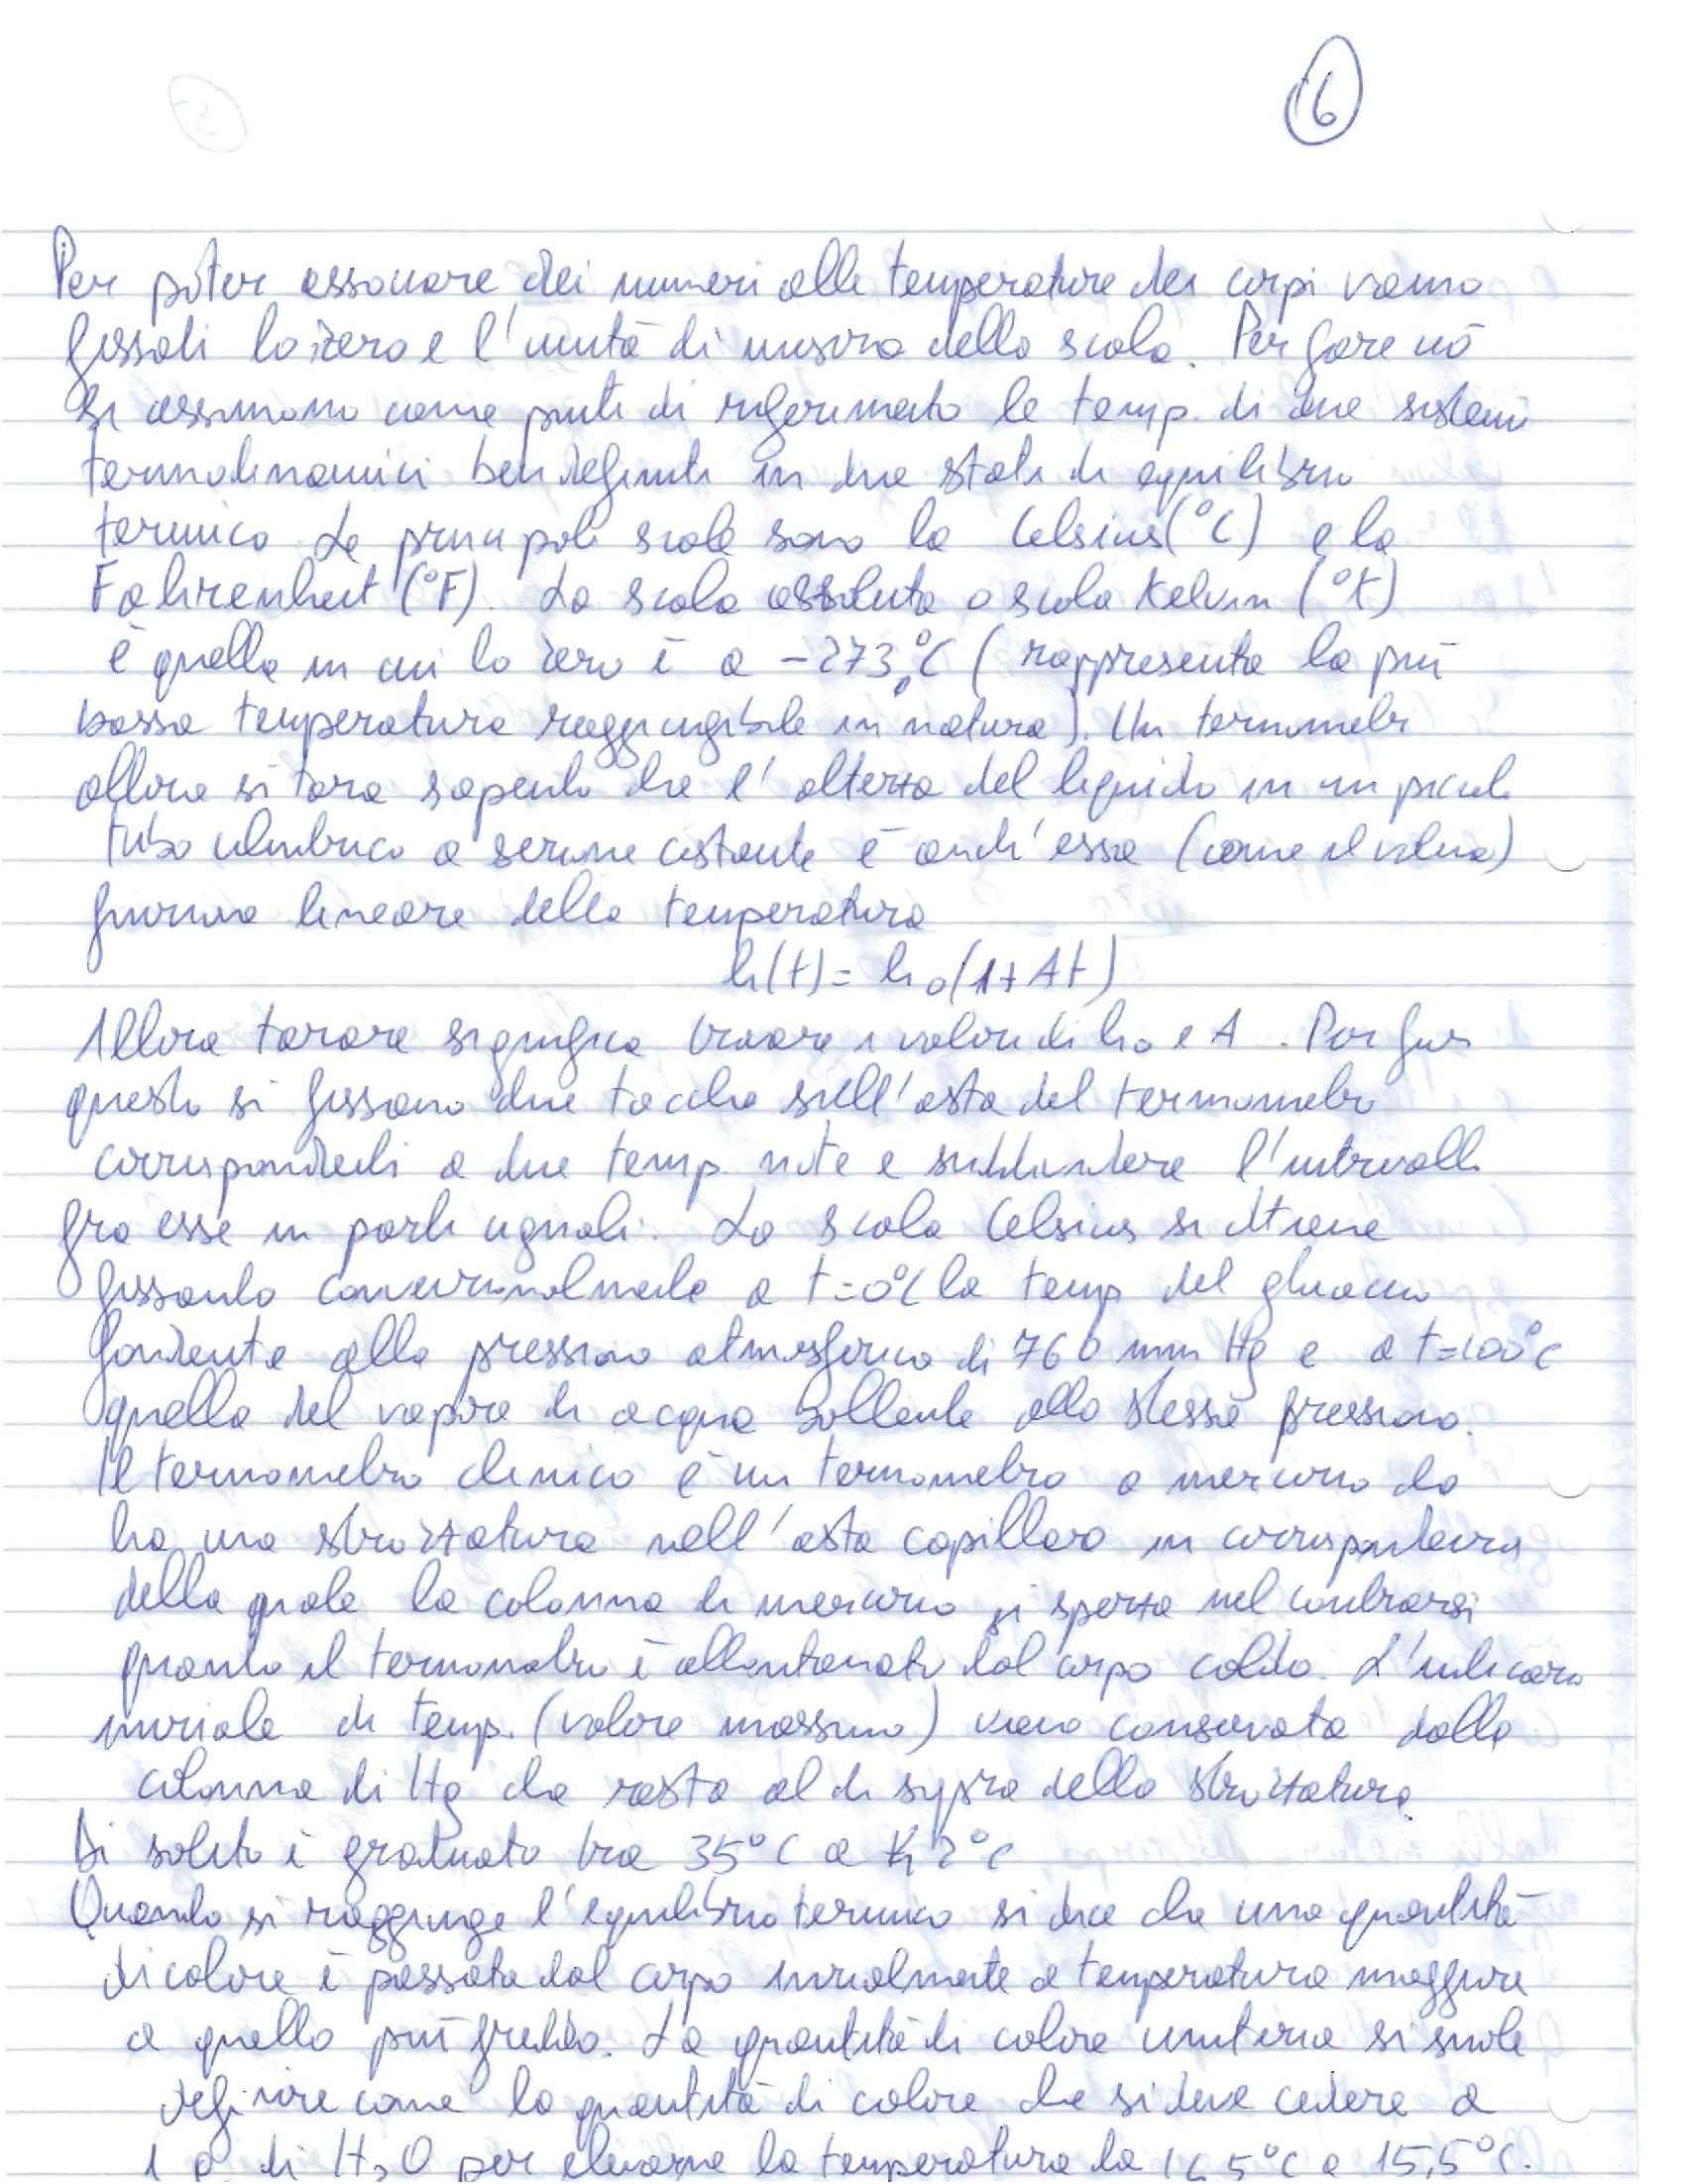 16
Per poter associare dei numeri alle temperature dei corpi vanno
fissati lo zero e l'unità di misura della scala. Per fare ciò
si assumono come punti di riferimento le temp. di due sistemi
termodinamici ben definiti in due stati di equilibrio
termico. Le principali scale sono la Celsius (°C) e la
Fahrenheit (°F). La scala assoluta o scala Kelvin (°K)
è quella in cui lo zero è a -273°C (rappresenta la più
bassa temperatura raggiungibile in natura). Un termometro
allora si tara sapendo che l'altezza del liquido in un piccolo
tubo cilindrico a sezione costante è anch'essa (come il volume)
funzione lineare della temperatura
h(t) = h₀(1+At)
Allora tarare significa trovare i valori di h₀ e A. Per fare
questo si fissano due tacche sull'asta del termometro
corrispondenti a due temp. note e suddividere l'intervallo
fra esse in parti uguali. La scala Celsius si ottiene
fissando convenzionalmente a t=0°C la temp del ghiaccio
fondente alla pressione atmosferica di 760 mm Hg e a t=100°C
quella del vapore di acqua bollente alla stessa pressione.
Il termometro clinico è un termometro a mercurio che
ha una strozzatura nell'asta capillare in corrispondenza
della quale la colonna di mercurio si spezza nel contrarsi
quando il termometro è allontanato dal corpo caldo. L'indicazione
iniziale di temp. (valore massimo) viene conservata dalla
colonna di Hg che resta al di sopra della strozzatura.
Di solito è graduato tra 35°C a 42°C
Quando si raggiunge l'equilibrio termico si dice che una quantità
di calore è passata dal corpo inizialmente a temperatura maggiore
a quello più freddo. La quantità di calore unitaria si suole
definire come la quantità di calore che si deve cedere a
1 g di H₂O per elevarne la temperatura da 14,5°C a 15,5°C.